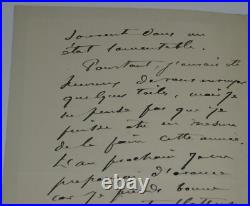 souvent dans un
état lamentable.
Pourtant, j'aurais été
heureux de vous envoyer
quelques toiles, mais je
ne pense pas que je
puisse être en mesure
de le faire cette année.
L'an prochain j'aurai
d'avance
car je prends bonne